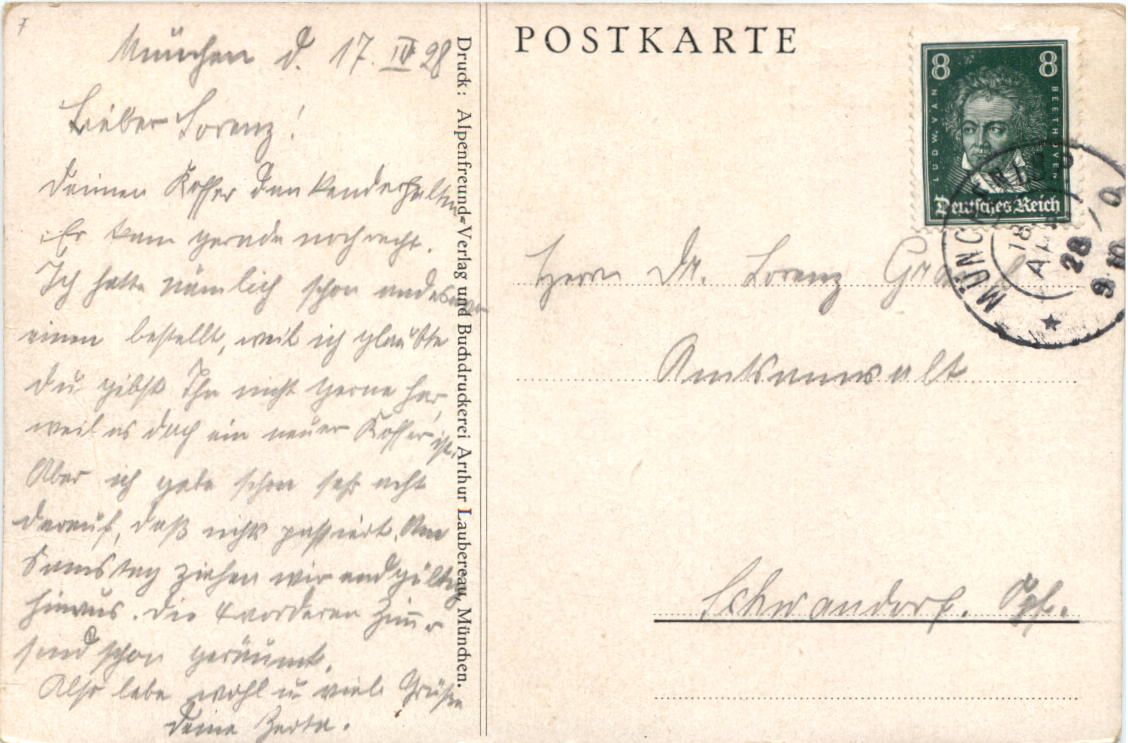 7
München d. 17. IV 28
Lieber Lorenz!
Deinen Koffer dankend erhalten
Er kam gerade noch recht.
Ich hatte nämlich schon anderswo
einen bestellt, weil ich glaubte
du gibst Ihn nicht gerne her,
weil es doch ein neuer Koffer ist.
Aber ich gebe schon sehr acht
darauf, daß nichts passiert. Am
Samstag ziehen wir endgültig
hinaus. Die 4 vorderen Zimmer
sind schon geräumt.
Also lebe wohl u viele Grüße
Deine Berta.
Druck: Alpenfreund-Verlag und Buchdruckerei Arthur Laubereau, München.
POSTKARTE
8 8
LUDW. VAN BEETHOVEN
Deutsches Reich
18
28
9-10
Herrn Dr. Lorenz
Amtsanwalt
Schwandorf. Opf.